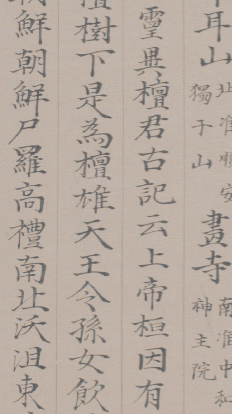 耳山北淮順安獨于山畫寺南淮中和神主院
靈異檀君古記云上帝桓因有
樹下是為檀雄天王令孫女飲
鮮朝鮮尸羅高禮南北沃沮東